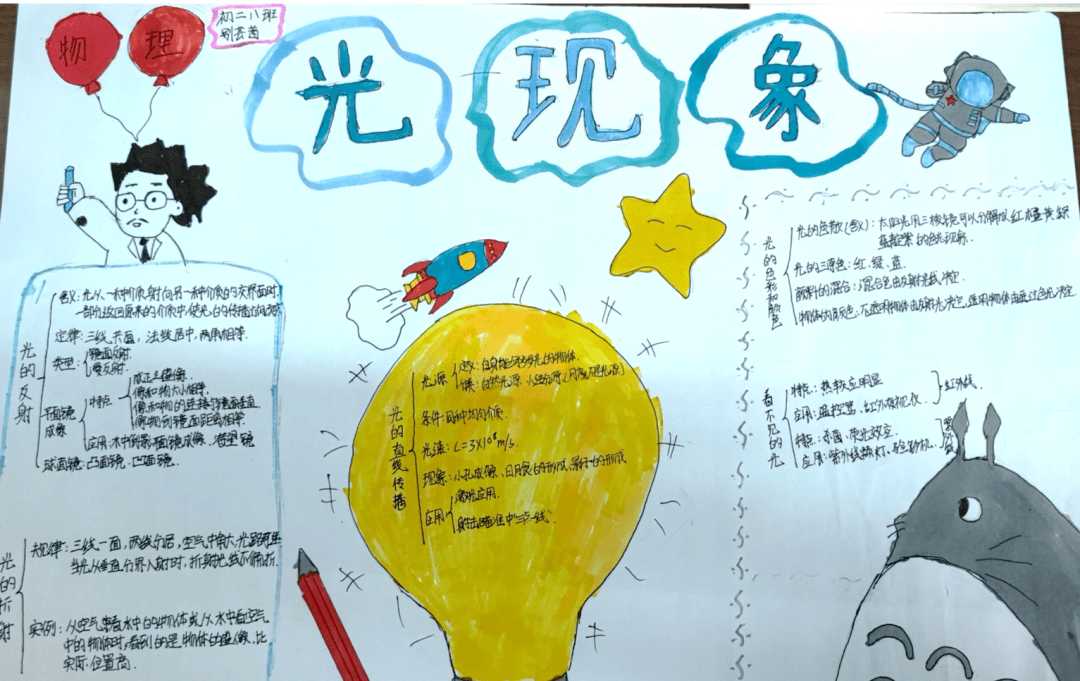 物理
初二八班
光现象
光的反射
含义:光从一种介质射向另一种介质的交界面时,
一部分返回原来的介质中,使光的传播方向改变
定律:三线共面,法线居中,两角相等.
类型:
镜面反射.
漫反射.
平面镜成像
特点
成正立虚像.
像和物大小相等.
像和物的连接与镜面垂直
像物到镜面距离相等.
应用:水中倒影、平面镜成像、潜望镜
球面镜:凸面镜、凹面镜.
光的折射
规律:三线一面,两线分居,空气中角大,光路可逆
当光从垂直分界入射时,折射光线不偏折.
实例:从空气看水中的物体或从水中看空气
中的物体时,看到的是物体的虚像,比
实际位置高.
光的直线传播
光源
含义:自身能够发光的物体.
条件:同种均匀介质.
光速:C=3×10⁸m/s.
现象:小孔成像、日月食的形成、影子的形成
应用
激光应用.
射击瞄准中"三点一线".
光的色彩和颜色
光的色散(含义):太阳光用三棱镜可以分解成红橙黄绿
蓝靛紫的色光现象.
光的三原色:红、绿、蓝.
颜料的混合:混合色由反射光线决定.
物体的颜色:不透明物体由反射光决定,透明物体由透过色光决定.
看不见的光
特点:热效应明显
应用:遥控器、红外夜视仪.
红外线.
特点:杀菌、荧光效应.
应用:紫外线灭菌灯、验钞机.
紫外线